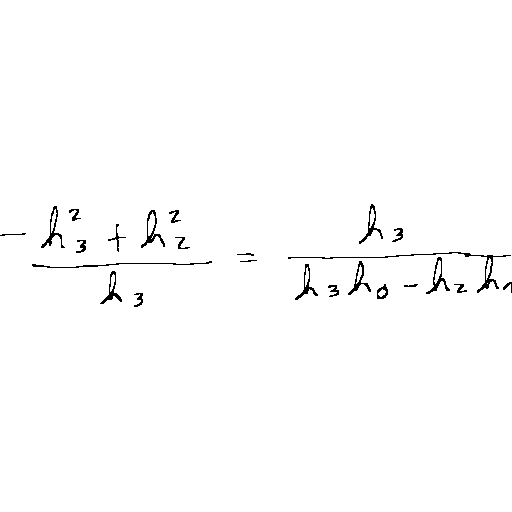 -\frac{h_3^2 + h_2^2}{h_3} = \frac{h_3}{h_3 h_0 - h_2 h_1}